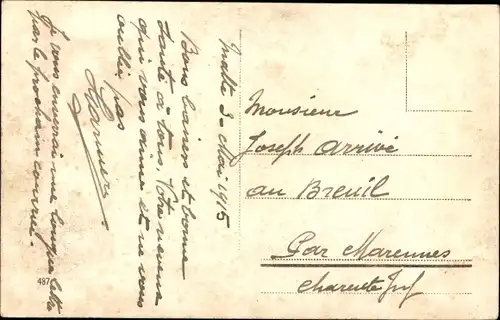 Malte 30 Mai 1915
Bons baisers et bonne
santé à tous. Votre neveu
qui vous aime et ne vous
oublie pas
Je vous enverrai une longue lettre
par le prochain courrier.
Monsieur
Joseph Arrivé
au Breuil
Par Marennes
Charente Inf
487